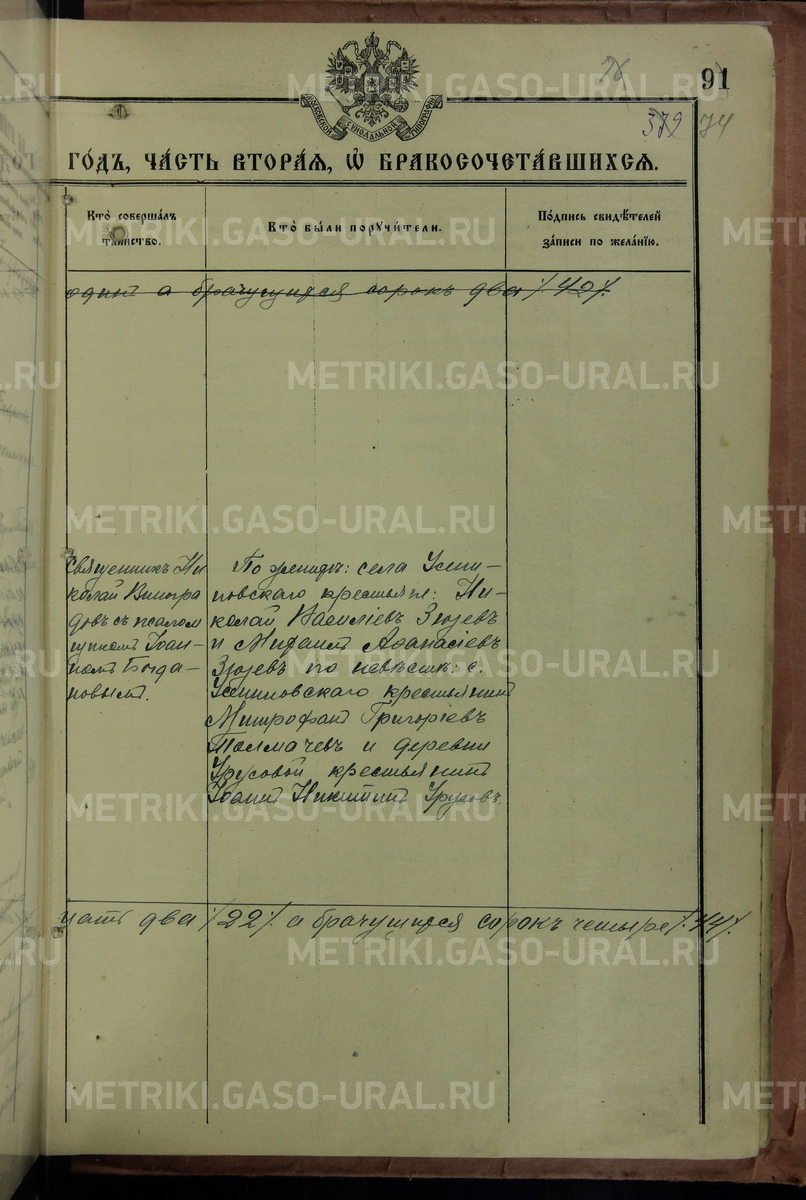 76
91
379 74
МОСКОВСКОЙ СѴНОДАЛЬНОЙ ТИПОГРАФІИ
ГО́ДЪ, ЧА́СТЬ ВТОРА́Я, Ѽ БРАКОСОЧЕТА́ВШИХСЯ.
Кто̀ соверша́лъ
та́инство.
Кто̀ бы́ли порꙋчи́тели.
По́дпись свидѣ́телей
за́писи по жела́нїю.
одинъ а брачущихся сорокъ два /42/.
Священникъ Ни
колай Виногра
довъ съ псалом
щикомъ Іоан-
номъ Богда-
новымъ.
По женихѣ: села Усти-
новскаго крестьяне: Ни-
колай Василіевъ Зюзевъ
и Михаилъ Аѳанасіевъ
Зюзевъ по невѣстѣ: с.
Устиновскаго крестьянинъ
Митрофанъ Григоріевъ
Толмачевъ и деревни
Урусовой крестьянинъ
Іоаннъ Никитинъ Урусовъ.
цать два /22/. а брачущихся сорокъ четыре /44/.
METRIKI.GASO-URAL.RU